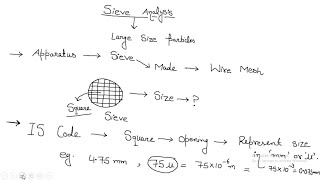 Sieve Analysis
Large Size particles
→ Apparatus → Sieve → Made → Wire Mesh
→ Size → ?
Square Sieve
→ IS Code → Square → Opening → Represent size
in 'mm' or 'μ'.
eg: 4.75 mm, 75 μ = 75×10⁻⁶ m
75×10⁻³ = 0.075mm